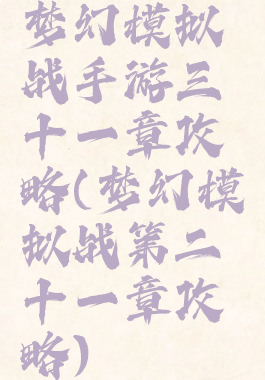 梦幻模拟
战手游三
十一章攻
略(梦幻模
拟战第二
十一章攻
略)